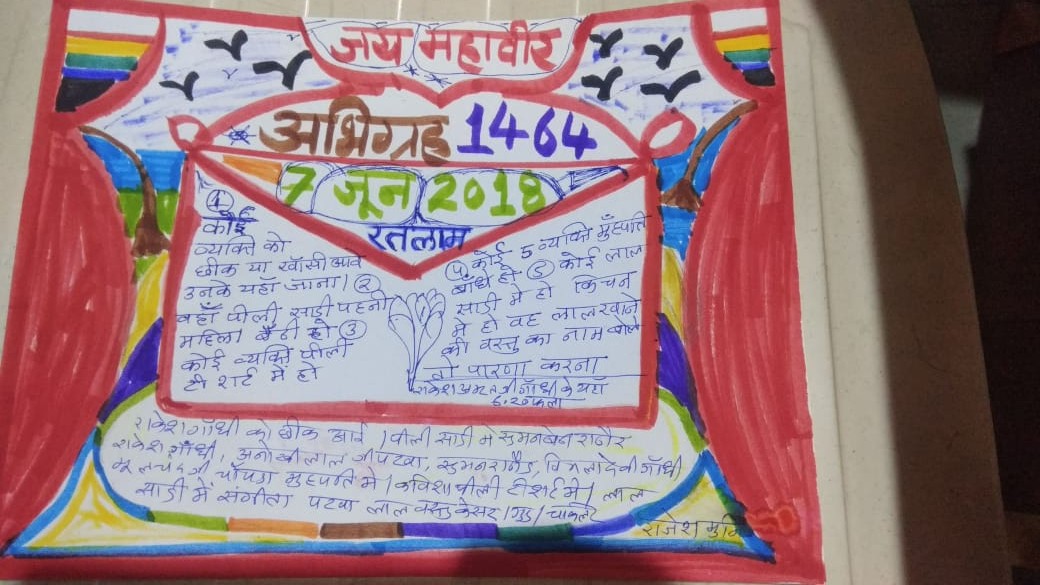 जय महावीर
अभिग्रह 1464
7 जून 2018
रतलाम
①
कोई
व्यक्ति को
छीक या खाँसी आवे
उनके यहाँ जाना। ②
वहाँ पीली साड़ी पहनी
महिला बैठी हो ③
कोई व्यक्ति पीली
टी शर्ट में हो
④ कोई 5 व्यक्ति मुँहपति
बाँधे हो ⑤ कोई लाल
साडी में हो किचन
में हो वह लाल खाने
की वस्तु का नाम बोले
तो पारणा करना
गाँधी के यहाँ
6.20
राकेश गाँधी को छीक आई। पीली साडी में सुमनबेन राठौर
राकेश गाँधी, अनोखीलाल जी पटवा, सुमन राठौड, विमलादेवी गाँधी
चोपडा मुहपति में। कविशा पीली टी शर्ट में। लाल
साडी में संगीता पटवा लाल वस्तु केसर। गुड। चाकलेट
राजेश मुनि